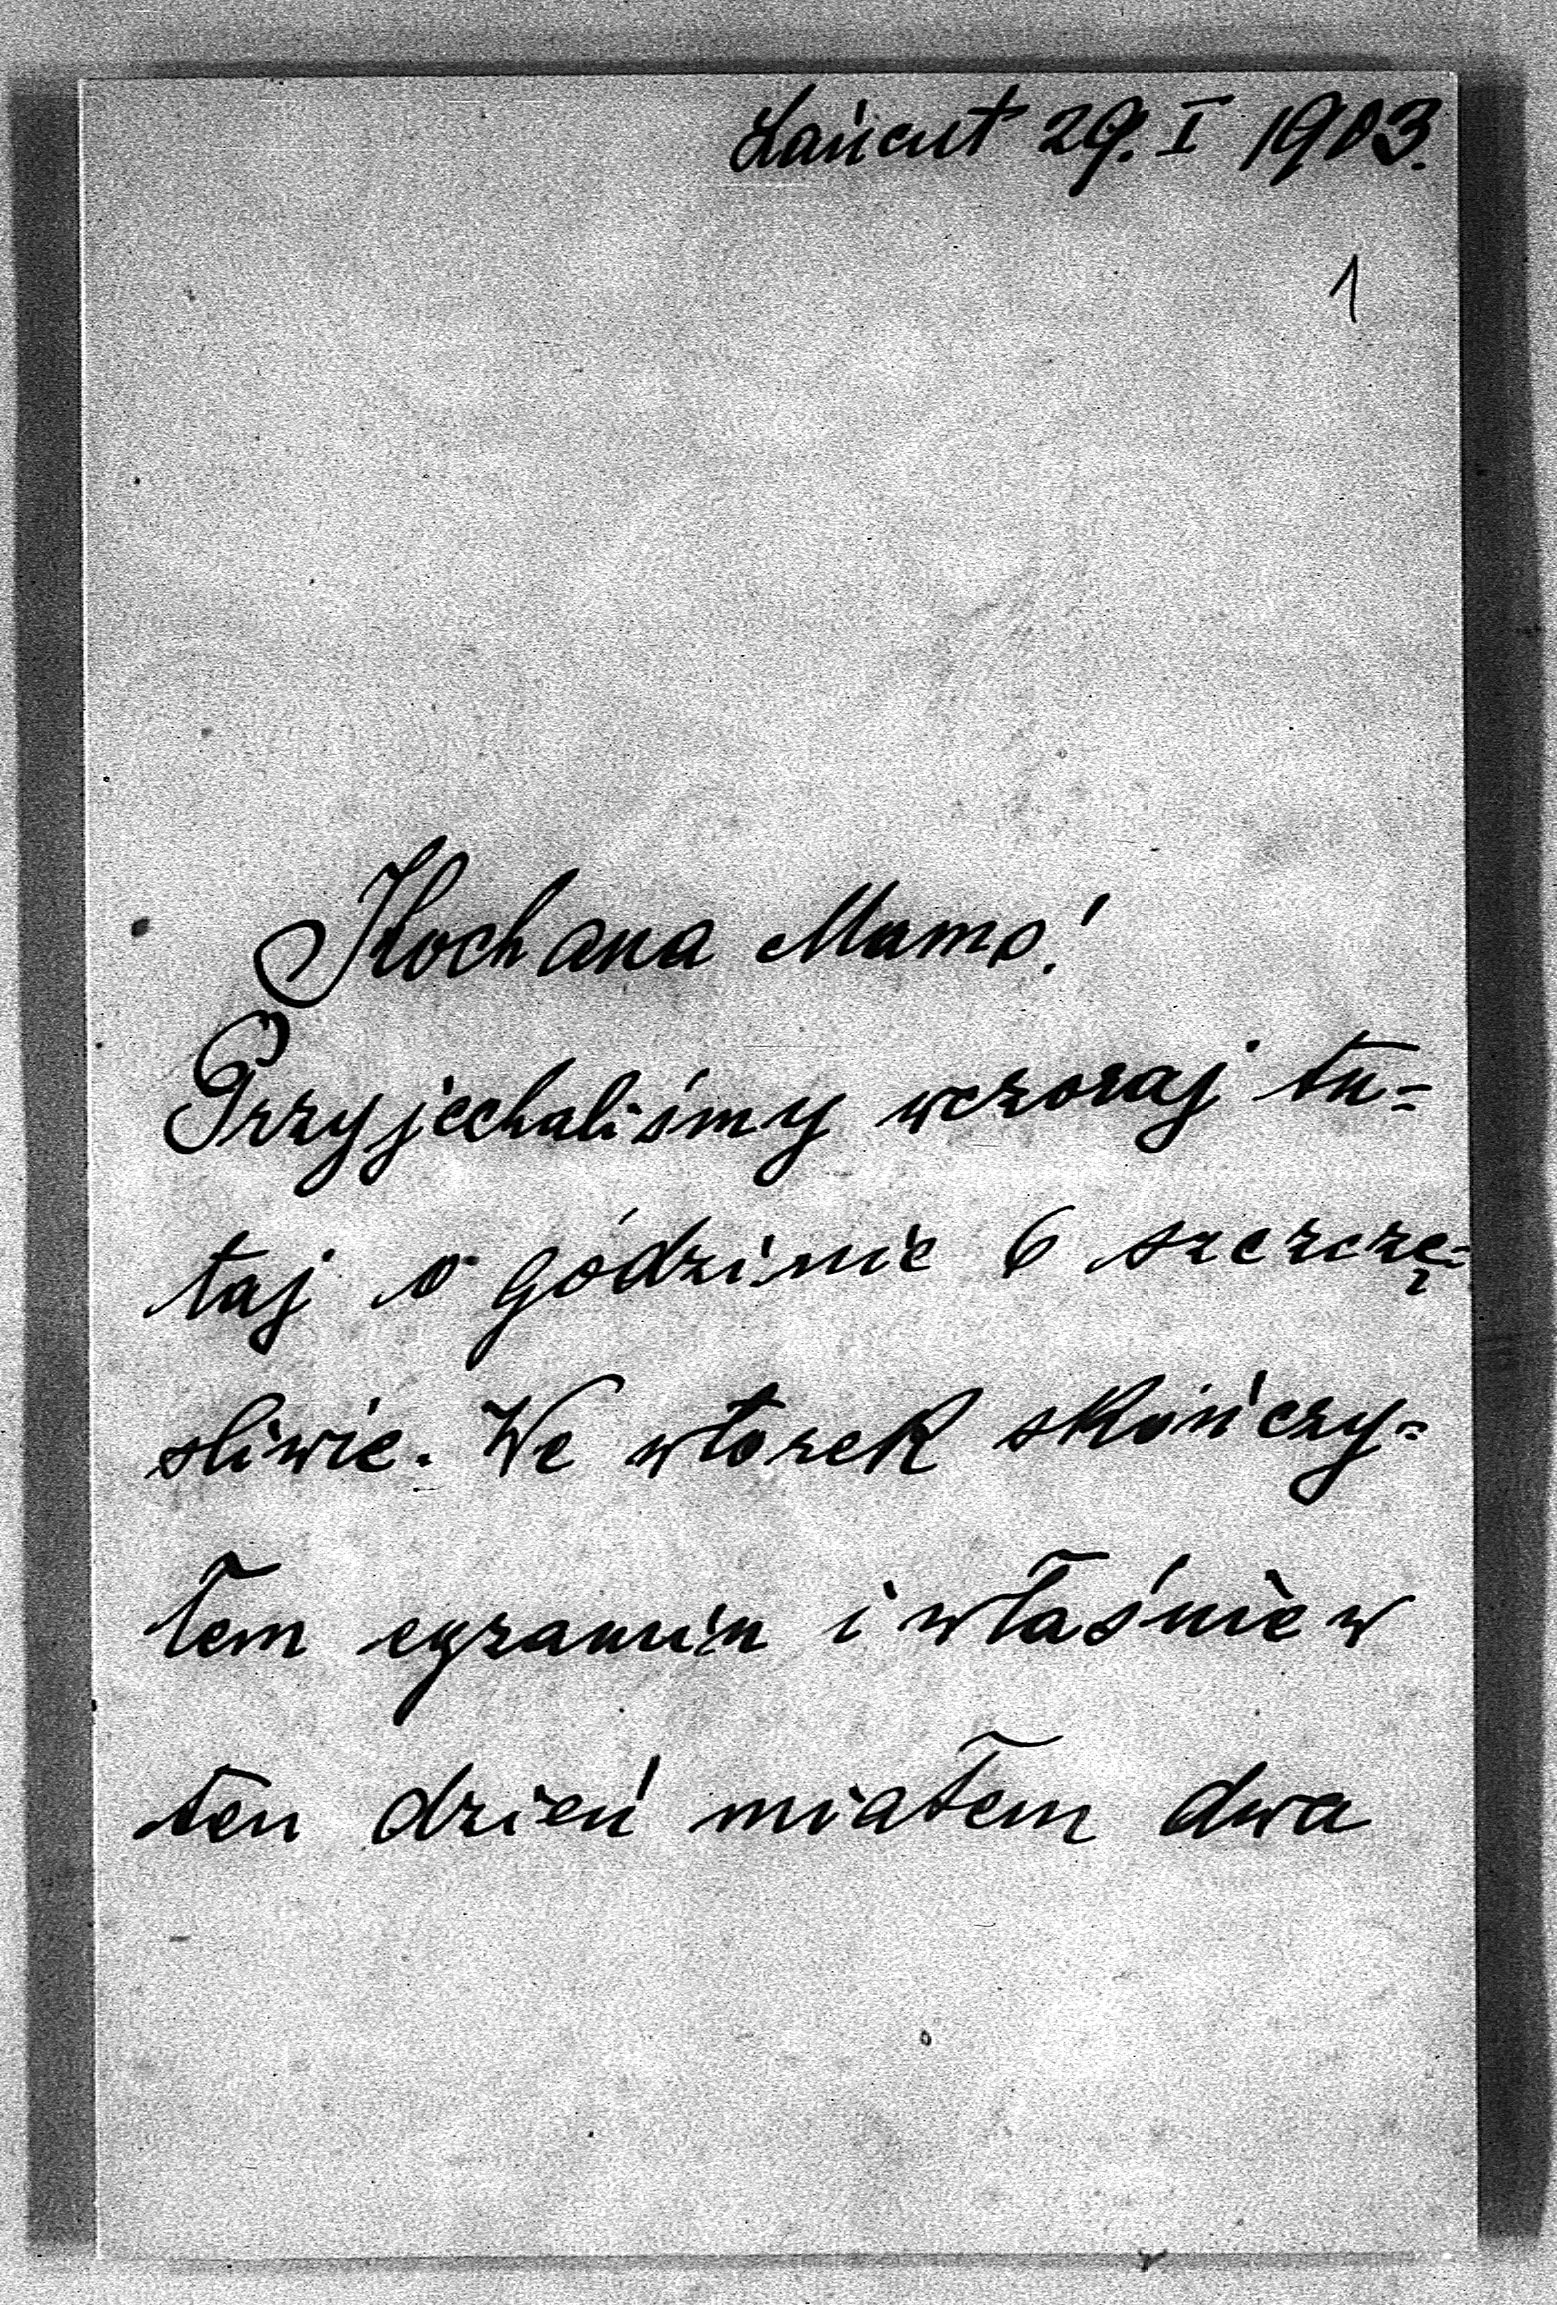 Łańcut 29. I 1903.
1
Kochana Mamo!
Przyjechaliśmy wczoraj tu=
taj o gódzinie 6 szczczę=
sliwie. We wtorek skończy=
łem egzamin i właśnie w
ten dzień miałem dwa